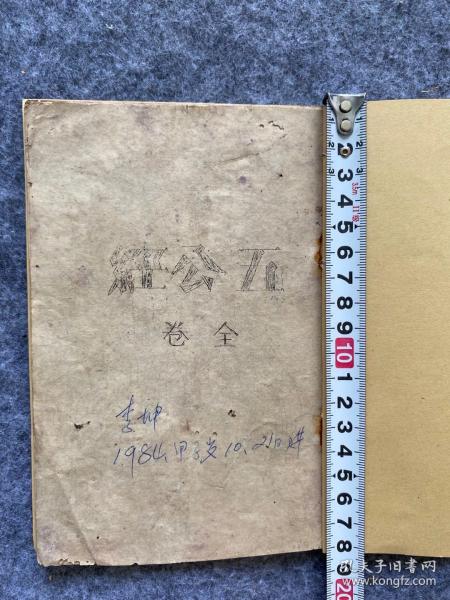 五公經
全卷
李坤
1984.甲子岁10.21日
2 3 4 5 6 7 8 9 10 1 2 3 4 5 6 7 8 9 20
孔夫子旧书网
www.kongfz.com